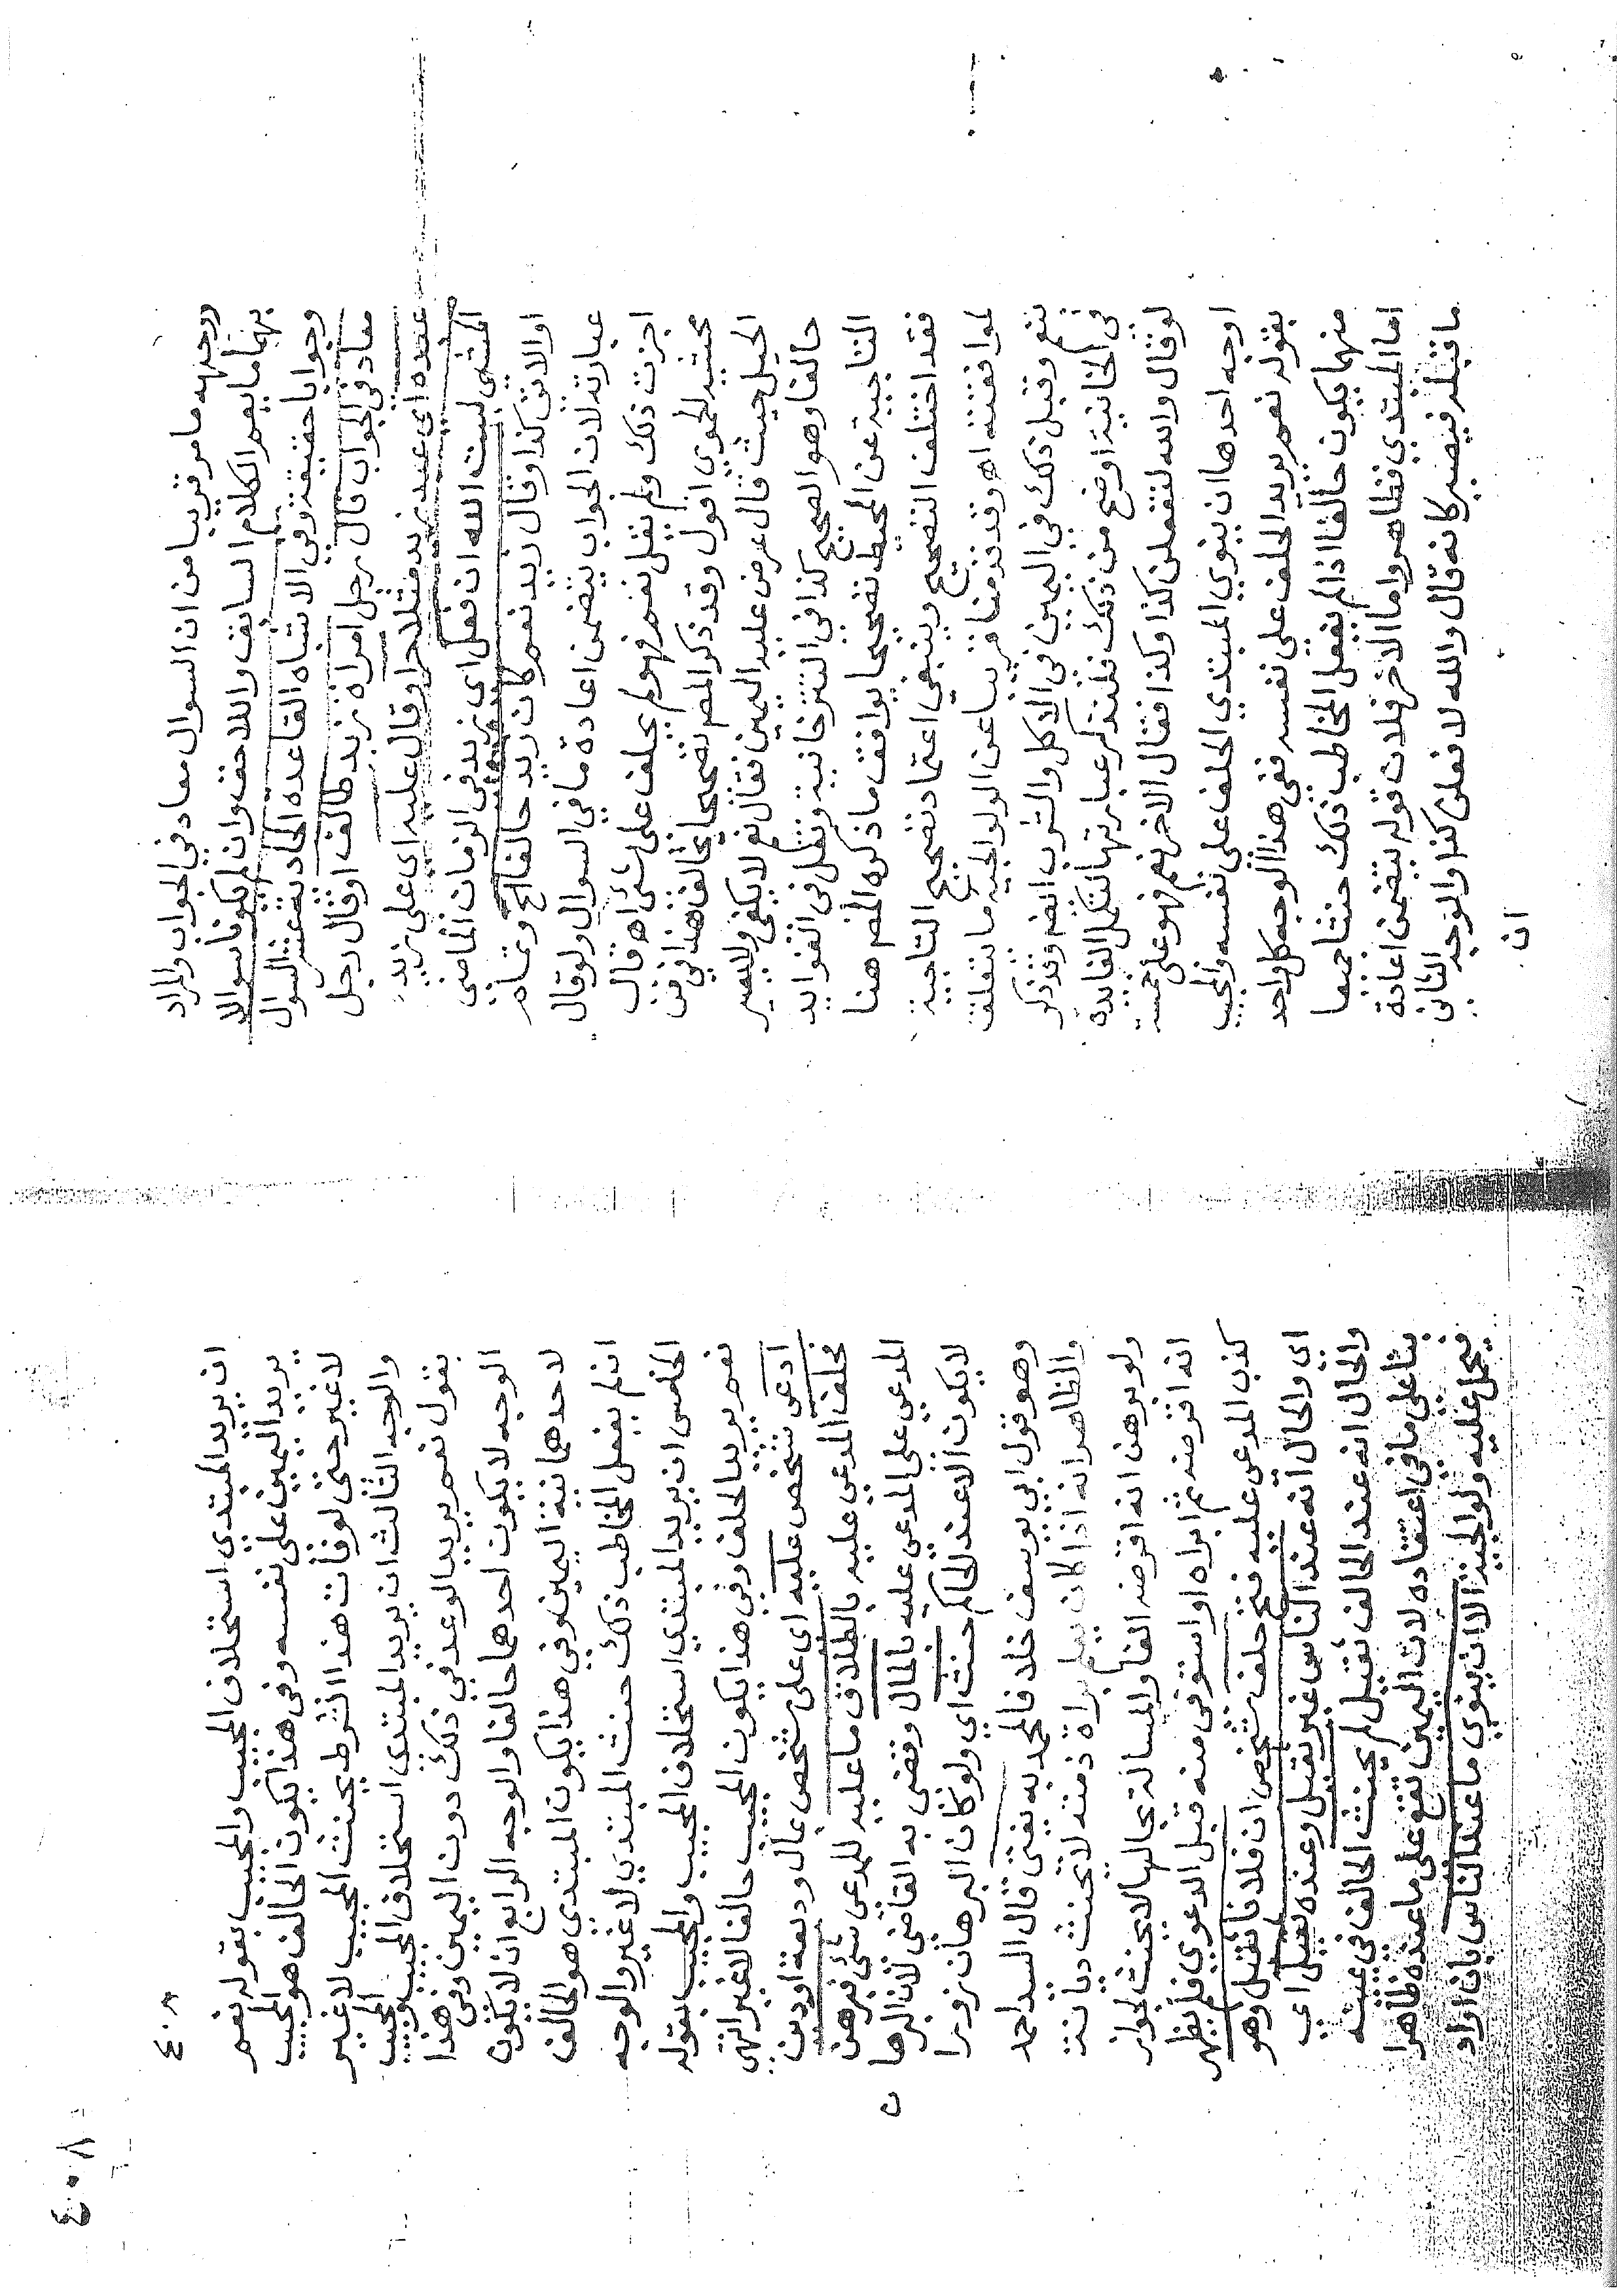 ووجهه ما مر قريبا من ان السوال معاد في الجواب والمراد
بهما ما يعم الكلام السابق واللاحق وان لم يكونا سوالا
وجوابا حقيقة وفي الاشباه القاعده الحاديه عشر السوال
معاد في الجواب قال رجل امراة زيد طالق اوقال رجل
عنده اي عبد زيد مثلا حر اوقال عليه اي على زيد
المشي لبيت الله ان فعل اي زيد في الزمان الماضي
او الاتي كذا وقال زيد نعم كان زيد حالفا الخ وتمام
عبارته لان الجواب يتضمن اعادة ما في السوال ولو قال
اجزت ذلك ولم يقل نعم فهو لم يحلف على شئ اه قال
محشيه الحموي اقول وقد ذكر المص تصحيحا يخالف هذا في فن
الحيل حيث قال عرض عليه اليمين فقال نعم لا يكفي ولا يصير
حالفا وهو الصحيح كذا في التترخانية ونقل في الفوايد
التاجية عن المحيط تصحيحا يوافق ما ذكره المص هنا
فقد اختلف التصحيح وينبغي اعتماد تصحيح التاجية
لموافقته اه وقد قدمنا قريبا عن الولوالجيه ما يتعلق
بنعم وقبيل ذلك في اليمين في الاكل والشرب ايضا وقد ذكر
في الخانية اوضح من ذلك فلنذكر عبارتها لتكمل الفايده
لو قال والله لتفعلن كذا وكذا فقال الاخر نعم فهو على خمسة
اوجه احدها ان ينوي المبتدي الحلف على نفسه والمجيب
بقوله نعم يريد الحلف على نفسه ففي هذا الوجه كل واحد
منهما يكون حالفا اذا لم يفعل المخاطب ذلك حنثا جميعا
اما المبتدي فظاهر واما الاخر فلان قوله يتضمن اعادة
ما قبله فيصير كانه قال والله لافعلن كذا والوجه الثاني
ان
٤٠٨
٤٠٨
ان يريد المبتدي استحلاف المجيب والمجيب بقوله نعم
يريد اليمين على نفسه وفي هذا يكون الحالف هو المجيب
لا غير حتى لو فات هذا الشرط يحنث المجيب لا غير
والوجه الثالث ان يريد المبتدي استحلاف المجيب والمجيب
بقول نعم يريد الوعد في ذلك دون اليمين وفي هذا
الوجه لا يكون احدهما حالفا والوجه الرابع ان لا يكون
لاحدهما نية اليمين وفي هذا يكون المبتدي هو الحالف
ان لم يفعل المخاطب ذلك حنث المبتدي لا غير والوجه
الخامس ان يريد المبتدي استحلاف المجيب والمجيب بقوله
نعم يريد الحلف وفي هذا يكون المجيب حالفا لا غير انتهى
ادعى شخص عليه اي على شخص بمال وديعة او دين
فحلف المدعي عليه بالطلاق ما عليه للمدعي شئ فبرهن
المدعي على المدعي عليه بالمال وقضى به القاضي لان البرها
ن
لا يكون الا عند الحاكم حنث اي ولو كان البرهان زورا
وهو قول ابي يوسف خلافا لمحمد به يفتى قال السد احمد
والظاهر انه اذا كان يعلم براة ذمته لا تحنث ديانة
ولو برهن انه اقرضه الفا والمسالة بحالها لا يحنث لجواز
انه اقرضه ثم ابراه او استوفى منه قبل الدعوي فلم يظهر
كذب المدعي عليه فتح حلف شخص ان فلانا ثقيل وهو
اي والحال انه عند الناس غير ثقيل وعنده ثقيل اي
والحال انه عند الحالف ثقيل لم يحنث الحالف في يمينه
بنا على ما في اعتقاده لان اليمين تقع على ما عنده ظاهرا
فيحمل عليه ولو المجيز الا ان ينوي ما عند الناس بان اراد